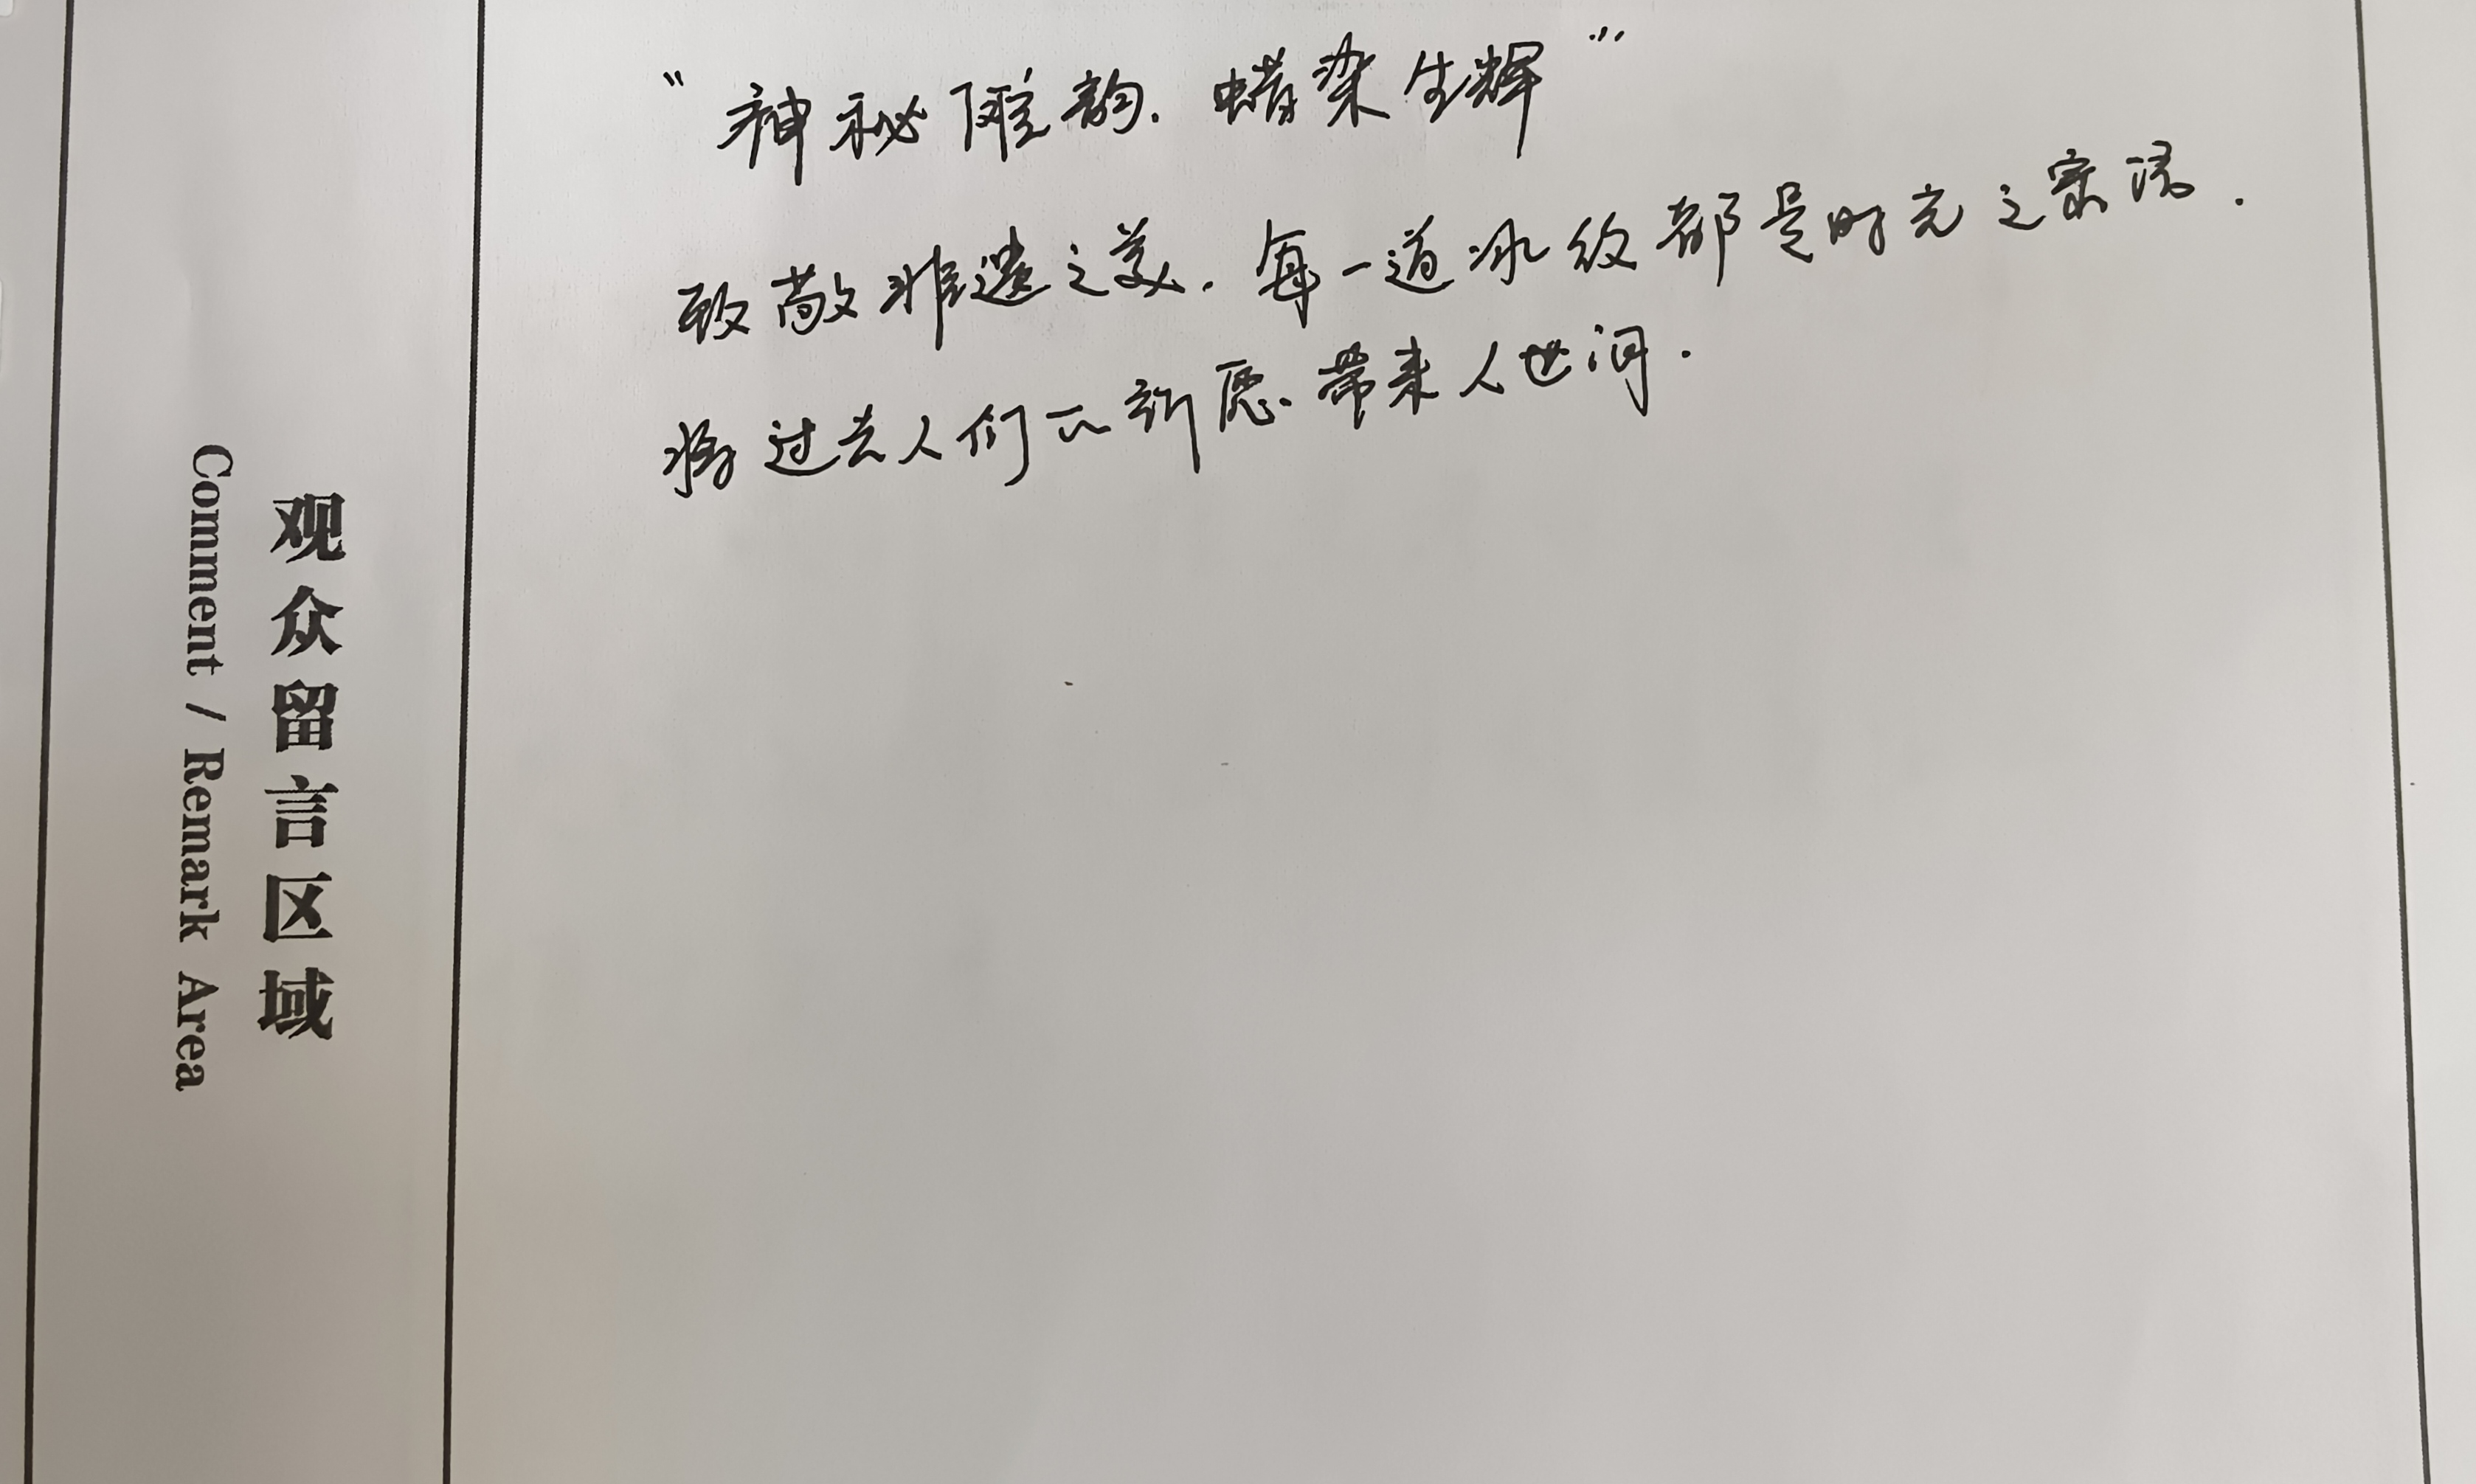 “神秘韵.蜡染生辉”
致敬非遗之美.每一道冰纹都是时光之.
将过去人们的祈愿.带来人世间.
观众留言区域
Comment / Remark Area